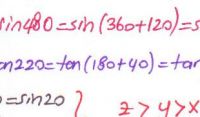 sin480=sin(360+120)=s
an220=tan(180+40)=tan
=sin20 } z>y>x